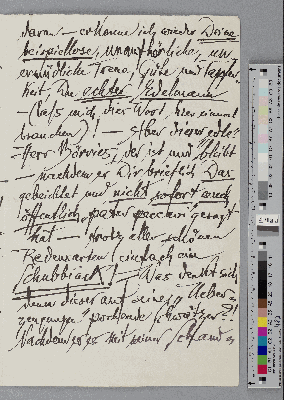 daran — erkenne ich wieder Deine
beispiellose, unaufhörliche, un-
ermüdliche Treue, Güte und Tapfer-
keit. Du echter Edelmann
(laß mich dies Wort hier einmal
brauchen)! — Aber dieser edle
Herr Börries, der ist und bleibt
— nachdem er Dir brieflich Das
gebeichtet und nicht sofort auch
öffentlich „pater peccavi" gesagt
hat trotz aller schönen
Redensarten! einfach ein
Schubbiack! — Was denkt sich
denn dieser auf seine „Ueber-
zeugung" pochende Schwätzer?!
Nachdem er es mit seiner